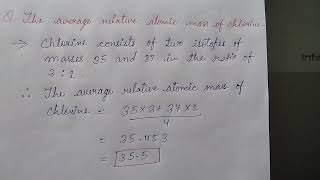 Q) The average relative atomic mass of chlorine-
→ Chlorine consists of two isotopes of
masses 35 and 37 in the ratio of
3 : 1
∴ The average relative atomic mass of
chlorine = 35×3+37×1
4
= 35.453
= 35.5